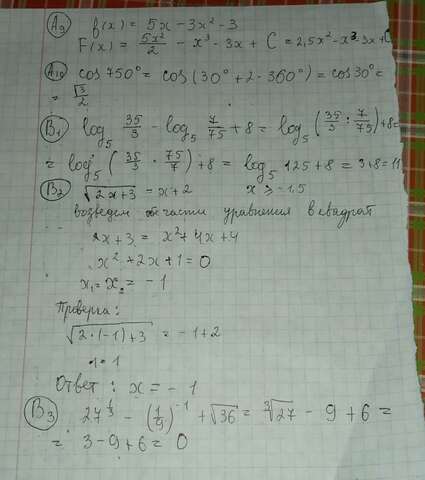 A9 f(x) = 5x - 3x² - 3
F(x) = 5x²/2 - x³ - 3x + C = 2,5x² - x³ - 3x + C
A10 cos 750° = cos(30° + 2·360°) = cos 30° =
= √3/2
B1 log₅ 35/3 - log₅ 7/75 + 8 = log₅(35/3 : 7/75) + 8 =
= log₅(35/3 · 75/7) + 8 = log₅ 125 + 8 = 3 + 8 = 11
B2 √(2x+3) = x + 2 x ≥ -1,5
возведем об части уравнения в квадрат
2x + 3 = x² + 4x + 4
x² + 2x + 1 = 0
x₁ = x₂ = -1
Проверка:
√(2·(-1)+3) = -1 + 2
1 = 1
Ответ: x = -1
B3 27^(1/3) - (1/9)⁻¹ + √36 = ³√27 - 9 + 6 =
= 3 - 9 + 6 = 0